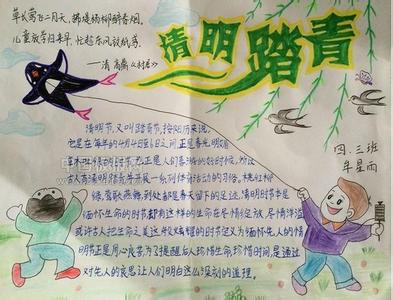 草长莺飞二月天，拂堤杨柳醉春烟。
儿童放学归来早，忙趁东风放纸鸢。
——清 高鼎《村居》
清明踏青
四、三班
牟星雨
清明节，又叫踏青节，按阳历来说，
它是在每年的4月4日至6日之间，正是春光明媚
草木吐绿的时节，也正是人们春游的好时候，所以
古人有清明踏青，并开展一系列体育活动的习俗。桃红柳
绿，莺歌燕舞，到处都是春天留下的足迹。清明时节本是
缅怀生命的时节，却有这样的生命在尽情绽放，尽情洋溢
或许古人把生命之美这般
的时节定义为缅怀先人的清
明节正是用心良苦。为了提醒后人珍惜生命，珍惜时间，是通过
对先人的哀思让人们明白这么深刻的道理。